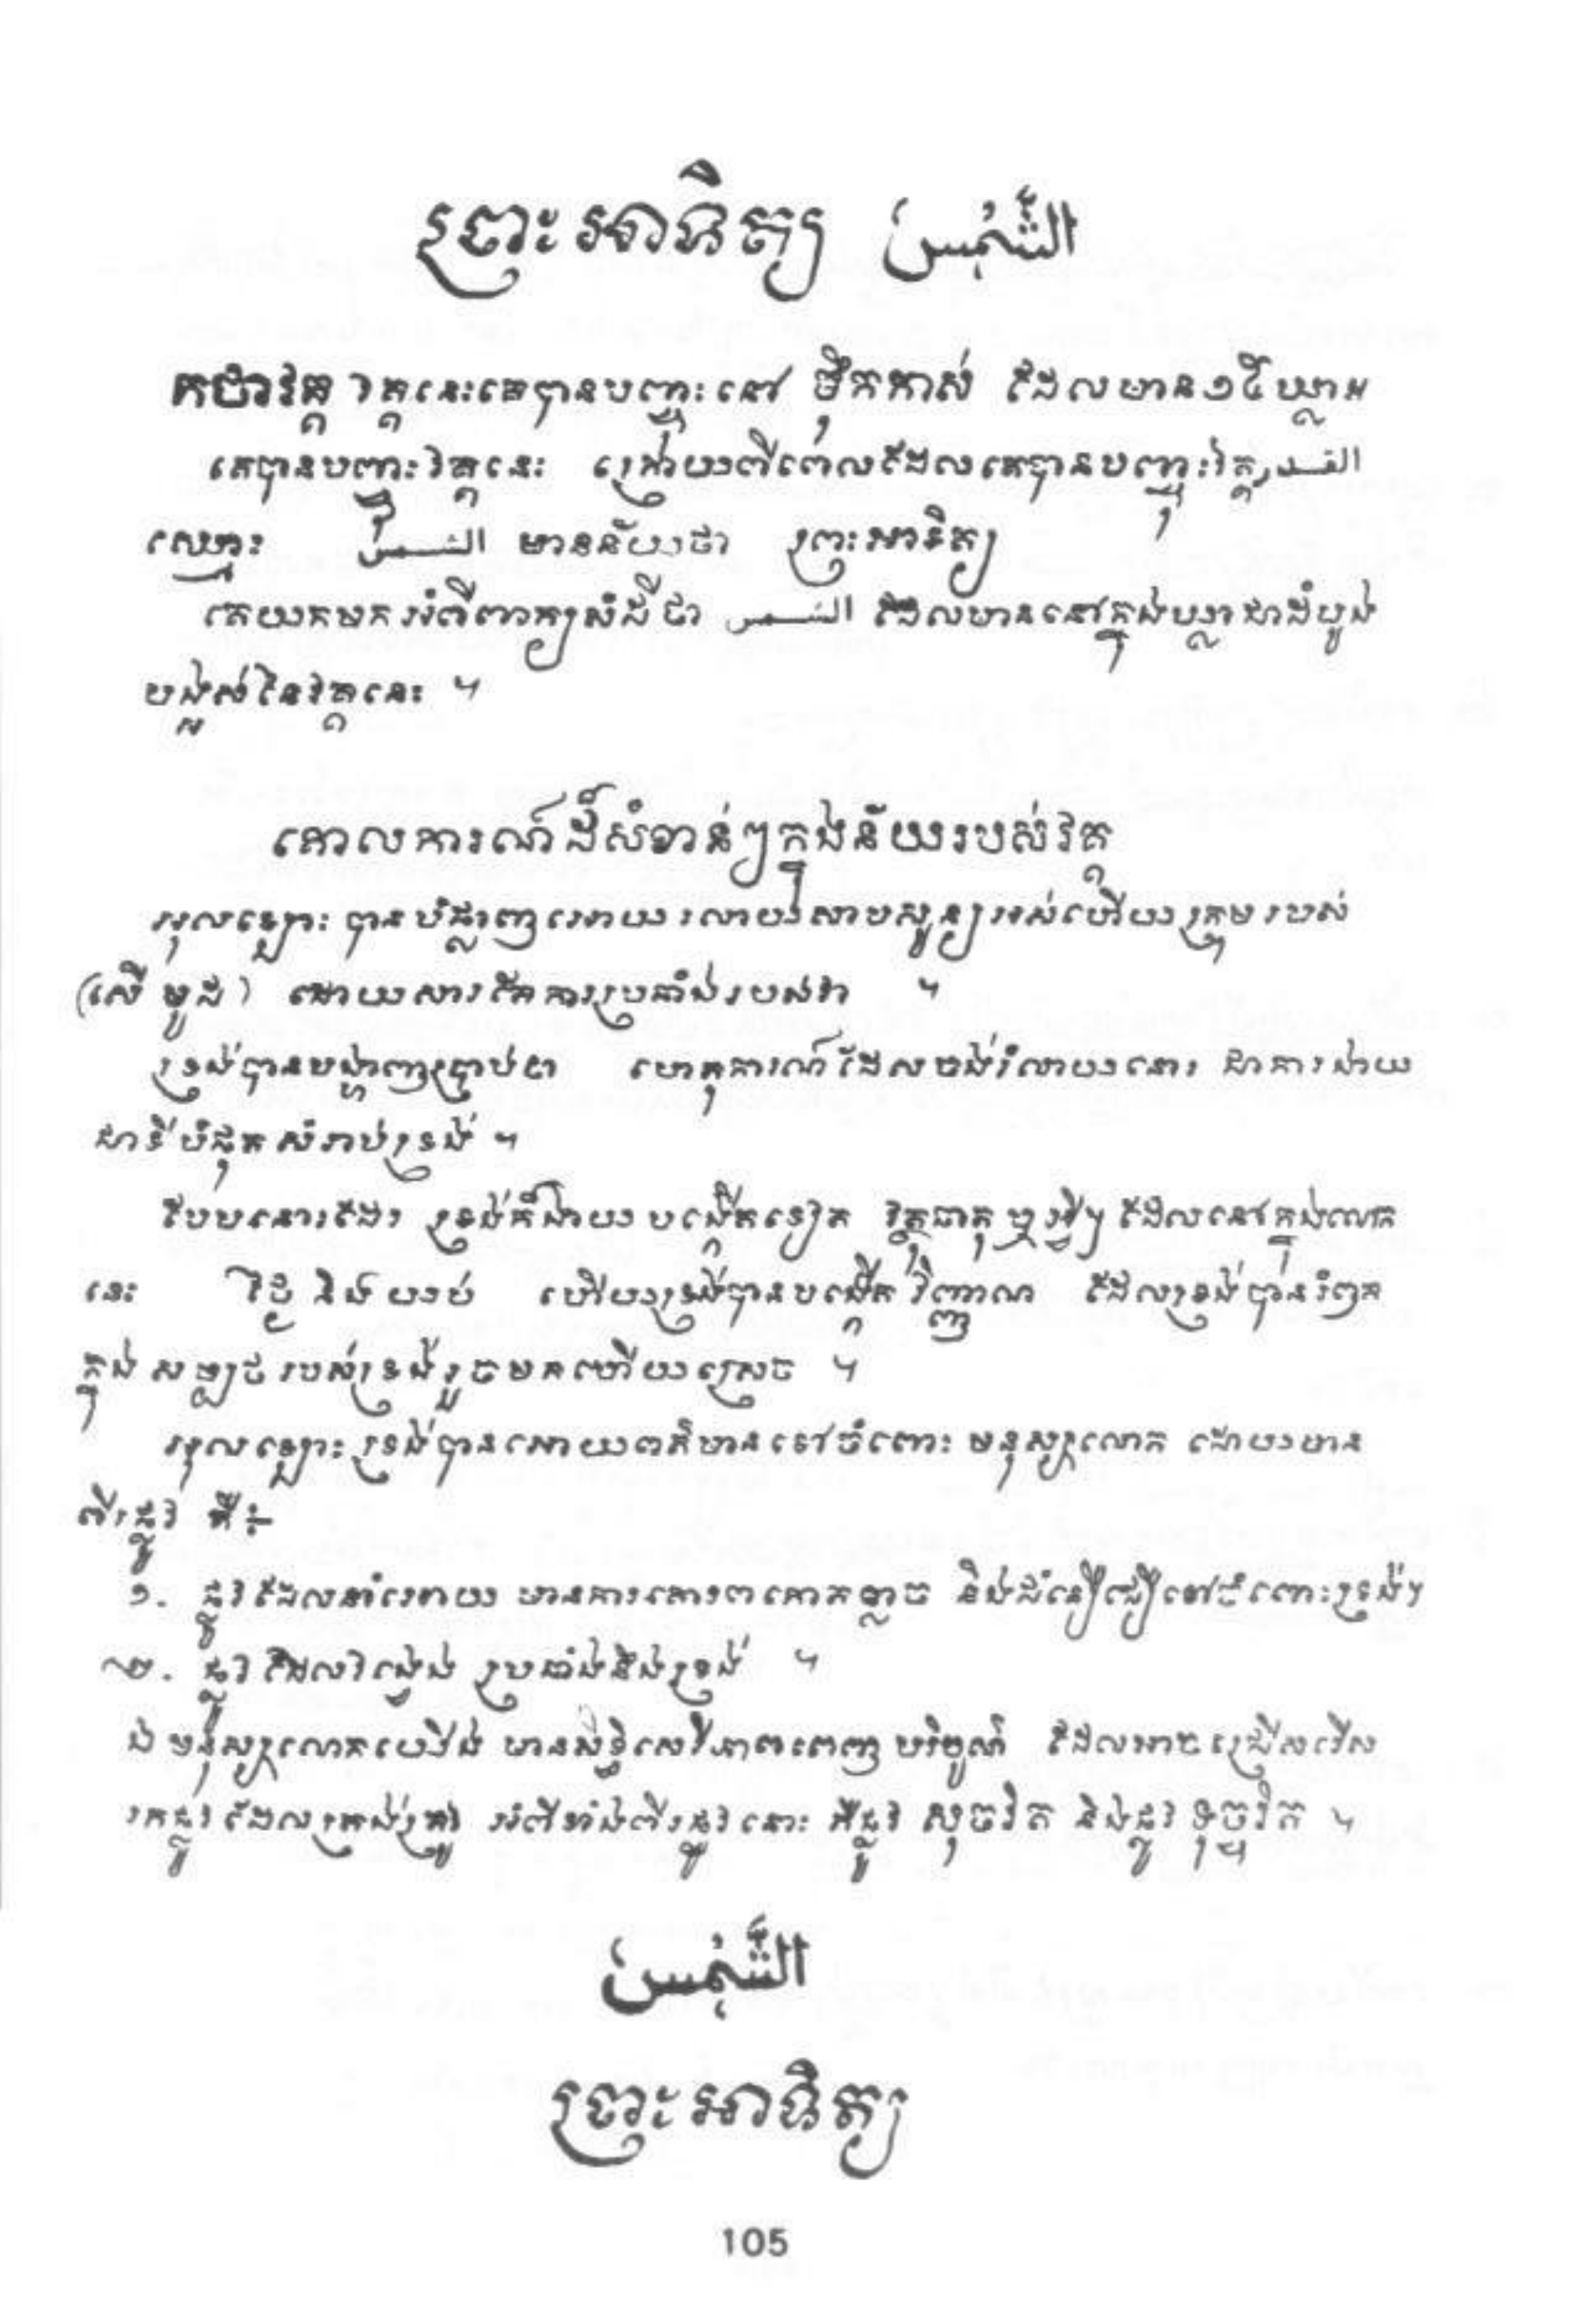 ព្រះអាទិត្យ الشَّمْسُ
កថាវគ្គ វគ្គនេះគេបានបញ្ចុះនៅ ម៉ឹកកាស់ ដែលមាន១៥ឃ្លា។
គេបានបញ្ចុះវគ្គនេះ ក្រោយពីពេលដែលគេបានបញ្ចុះវគ្គ القدر
ឈ្មោះ الشمس មានន័យថា ព្រះអាទិត្យ
គេយកមកអំពីពាក្យសំដីថា الشمس ដែលមាននៅក្នុងឃ្លាជាដំបូង
បង្អស់នៃវគ្គនេះ ។
គោលការណ៍ដ៏សំខាន់ៗក្នុងន័យរបស់វគ្គ
អុលឡោះ បានបំផ្លាញអោយរលាយសាបសូន្យអស់ហើយក្រុមរបស់
(សើមូដ) ដោយសារតែការប្រឆាំងរបស់វា ។
ទ្រង់បានបង្ហាញប្រាប់ថា ហេតុការណ៍ដែលចង់រំលាយនោះ ជាការងាយ
ជាទីបំផុតសំរាប់ទ្រង់ ។
បែបនោះដែរ ទ្រង់ក៏ងាយបង្កើតទៀត វត្ថុធាតុឬអ្វីៗ ដែលនៅក្នុងលោក
នេះ ថ្ងៃ និង យប់ ហើយទ្រង់បានបង្កើតវិញ្ញាណ ដែលទ្រង់បាន
ក្នុង សម្បថ របស់ទ្រង់រួចមកហើយស្រេច ។
អុលឡោះ ទ្រង់បានអោយពត៌មានទៅចំពោះ មនុស្សលោក ដោយមាន
ពីរផ្លូវ គឺ÷
១. ផ្លូវដែលនាំអោយ មានការគោរពកោតខ្លាច និងជំនឿជឿទៅចំពោះទ្រង់។
២. ផ្លូវដែលវង្វេង ប្រឆាំងនឹងទ្រង់ ។
ឯមនុស្សលោកយើង មានសិទ្ធិសេរីភាពពេញបរិបូណ៌ ដែលអាចជ្រើសរើស
រកផ្លូវដែលត្រង់ត្រូវ អំពីទាំងពីរផ្លូវនោះ គឺផ្លូវ សុចរិត និងផ្លូវ ទុច្ចរិត ។
الشَّمْسُ
ព្រះអាទិត្យ
105